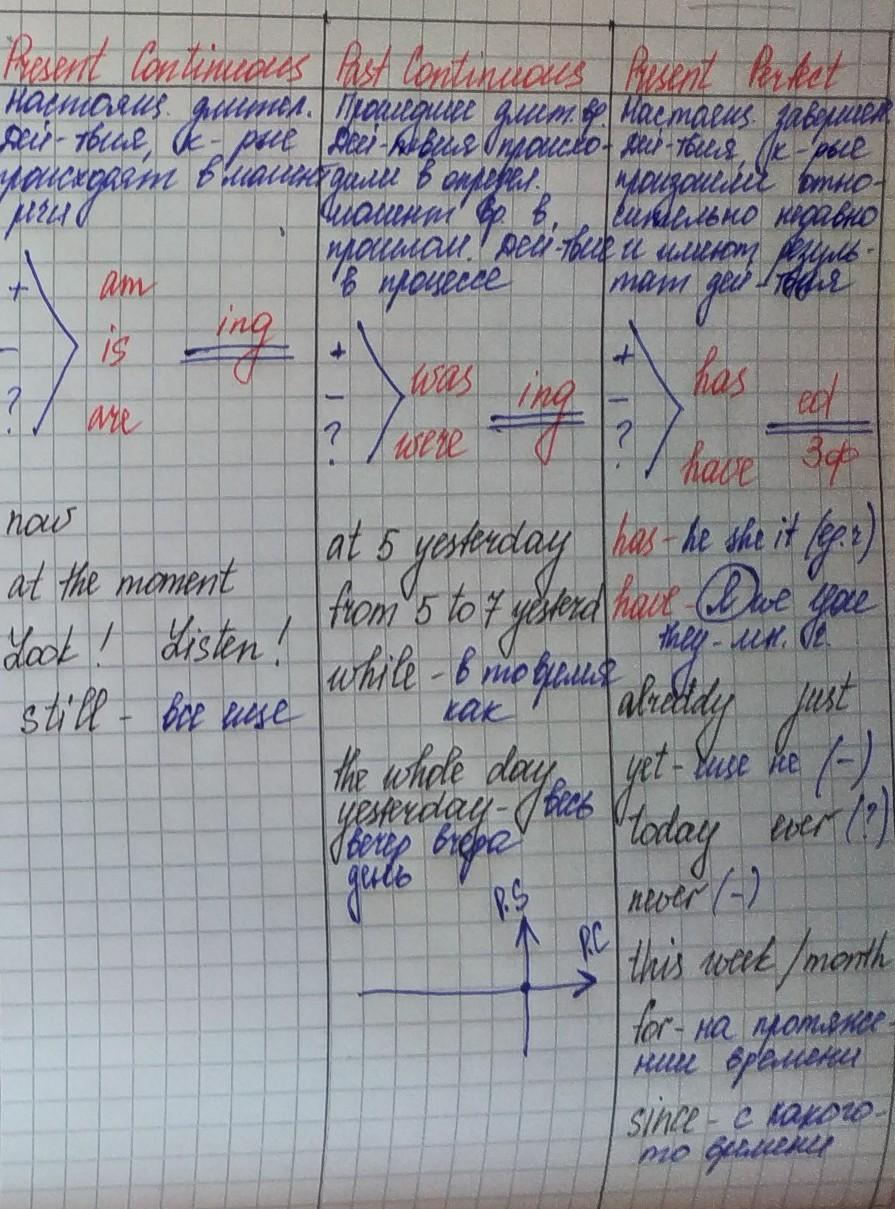 Present Continuous
Настоящ. длител.
дей-твия, к-рые
происходят в момент
речи
+
-
?
am
is
are
ing
now
at the moment
Look! Listen!
still - все еще
Past Continuous
Прошедшее длит. вр.
Дей-твия происхо-
дили в определ.
момент вр. в
прошлом. Дей-твие
в процессе
+
-
?
was
were
ing
at 5 yesterday
from 5 to 7 yesterd
while - в то время
как
the whole day
yesterday - весь
вечер вчера
день
P.S
P.C
Present Perfect
Настоящ. завершен
Дей-твия, к-рые
произошли отно-
сительно недавно
и имеют резуль-
тат дей-твия
+
-
?
has
have
ed
3ф
has - he she it (ед.ч)
have - I we you
they - мн. ч.
already just
yet - еще не (-)
today ever (?)
never (-)
this week/month
for - на протяже-
нии времени
since - с какого-
то времени